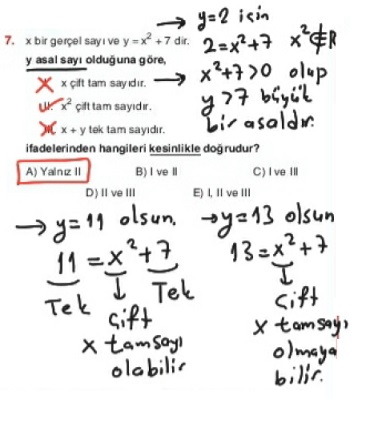 → y=2 için
7. x bir gerçel sayı ve y = x² + 7 dir.
2=x²+7 x²∉R
y asal sayı olduğuna göre,
I. x çift tam sayıdır. → x²+7>0 olup
II. x² çift tam sayıdır.
y>7 büyük
III. x + y tek tam sayıdır.
bir asaldır.
ifadelerinden hangileri kesinlikle doğrudur?
A) Yalnız II B) I ve II C) I ve III
D) II ve III E) I, II ve III
→ y=11 olsun.
11 = x²+7
Tek ↓ Tek
çift
x tamsayı
olabilir
→ y=13 olsun
13=x²+7
↓
çift
x tamsayı
olmaya
bilir.